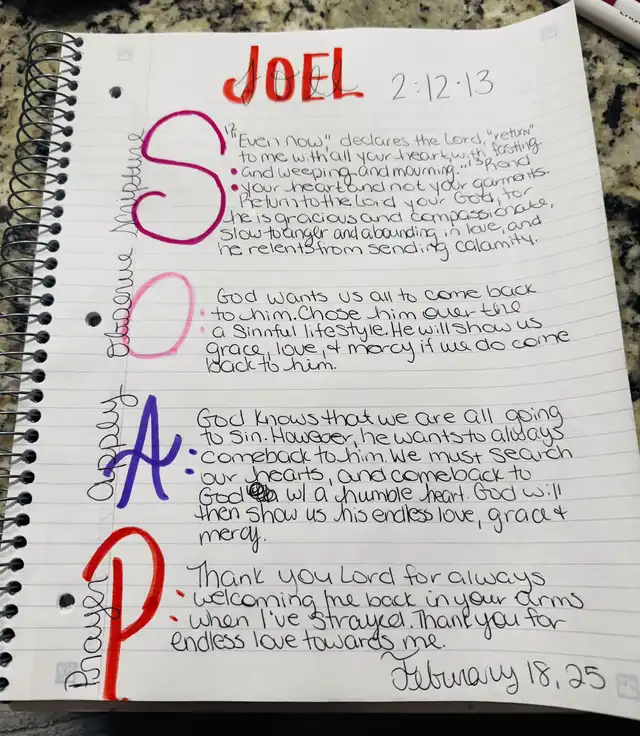 JOEL 2:12-13
Scripture
S:
12 "Even now" declares the Lord, "return"
to me with all your heart, with fasting
and weeping and mourning." 13 Rend
your heart and not your garments.
Return to the Lord your God, for
he is gracious and compassionate,
slow to anger and abounding in love, and
he relents from sending calamity.
Observe
O:
God wants us all to come back
to him. Chose him over the
a sinnful lifestyle. He will show us
grace, love, & mercy if we do come
back to him.
Apply
A:
God knows that we are all going
to sin. However, he wants to always
comeback to him. We must search
our hearts, and comeback to
God w/ a humble heart. God will
then show us his endless love, grace &
mercy.
Prayer
P:
Thank you Lord for always
welcoming me back in your arms
when I've strayed. Thank you for
endless love towards me.
February 18, 25